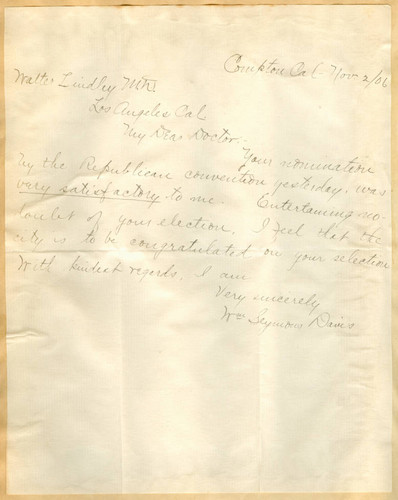 Compton Cal - Nov 2/06
Walter Lindley M.D.
Los Angeles Cal
My Dear Doctor:-
Your nomination
by the Republican convention yesterday, was
very satisfactory to me. Entertaining no
doubt of your election, I feel that the
city is to be congratulated on your selection
With kindest regards, I am
Very sincerely
Wm Seymour Davis